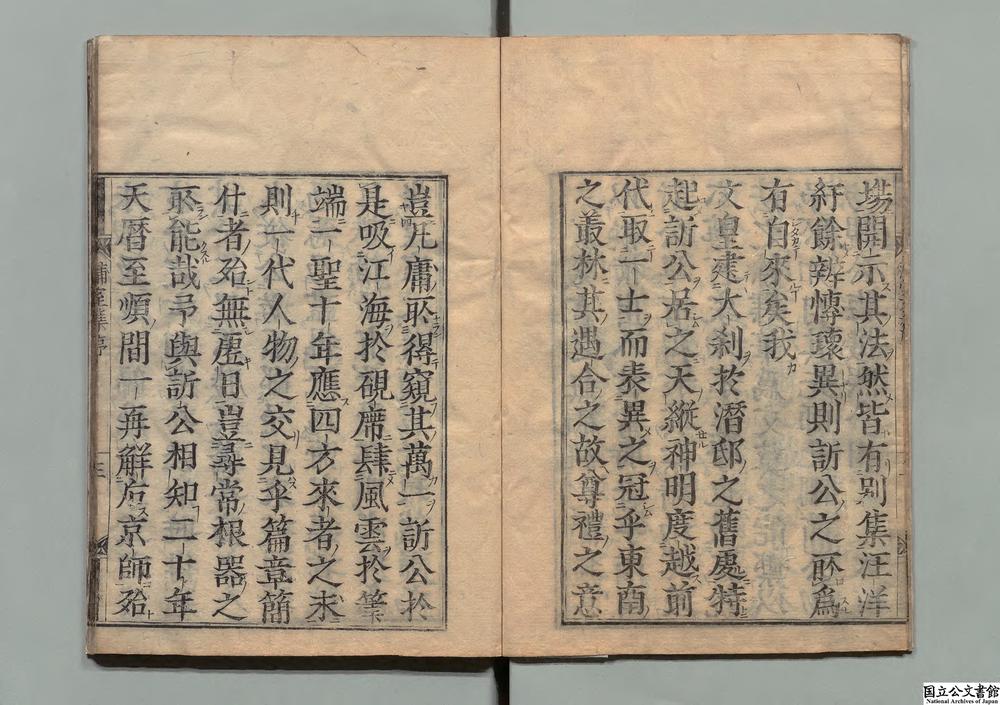 場開示其法然皆有別集汪洋
紆餘辨博瓌異則訢公之所為
有自來矣我
文皇建大刹於潛邸之舊處特
起訢公居之天縱神明度越前
代取一士而表異之冠乎東南
之叢林其遇合之故尊禮之意
豈凡庸所得窺其萬一訢公於
是吸江海於硯席肆風雲於筆
端二聖十年應四方來者之求
則一代人物之交見乎篇章簡
什者殆無虛日豈尋常根器之
所能哉予與訢公相知二十年
天曆至順間一再解后京師殆
蒲室集序
三
国立公文書館
National Archives of Japan